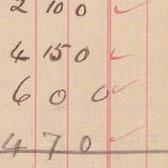 2 10 0
4 15 0
6 0 0
4 7 0